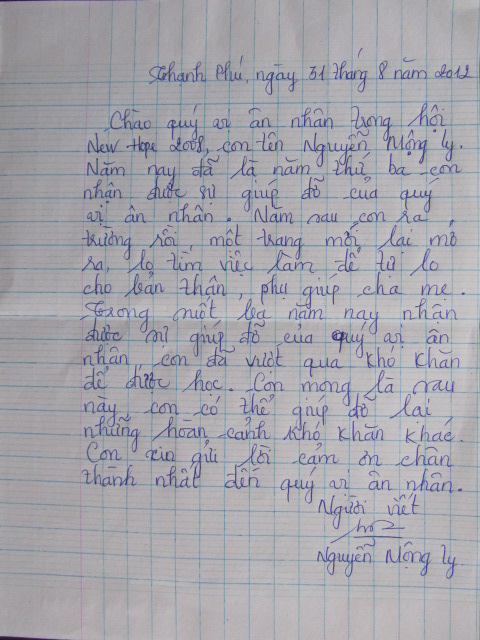 Thạnh Phú, ngày 31 tháng 8 năm 2012
Chào quý vị ân nhân trong hội
New Hope 2008, con tên Nguyễn Mộng Ly.
Năm nay đã là năm thứ ba con
nhận được sự giúp đỡ của quý
vị ân nhân. Năm sau con ra
trường rồi, một trang mới lại mở
ra, lo tìm việc làm để tự lo
cho bản thân, phụ giúp cha mẹ.
Trong suốt ba năm nay nhận
được sự giúp đỡ của quý vị ân
nhân con đã vượt qua khó khăn
để được học. Con mong là sau
này con có thể giúp đỡ lại
những hoàn cảnh khó khăn khác.
Con xin gửi lời cảm ơn chân
thành nhất đến quý vị ân nhân.
Người viết
Nguyễn Mộng Ly